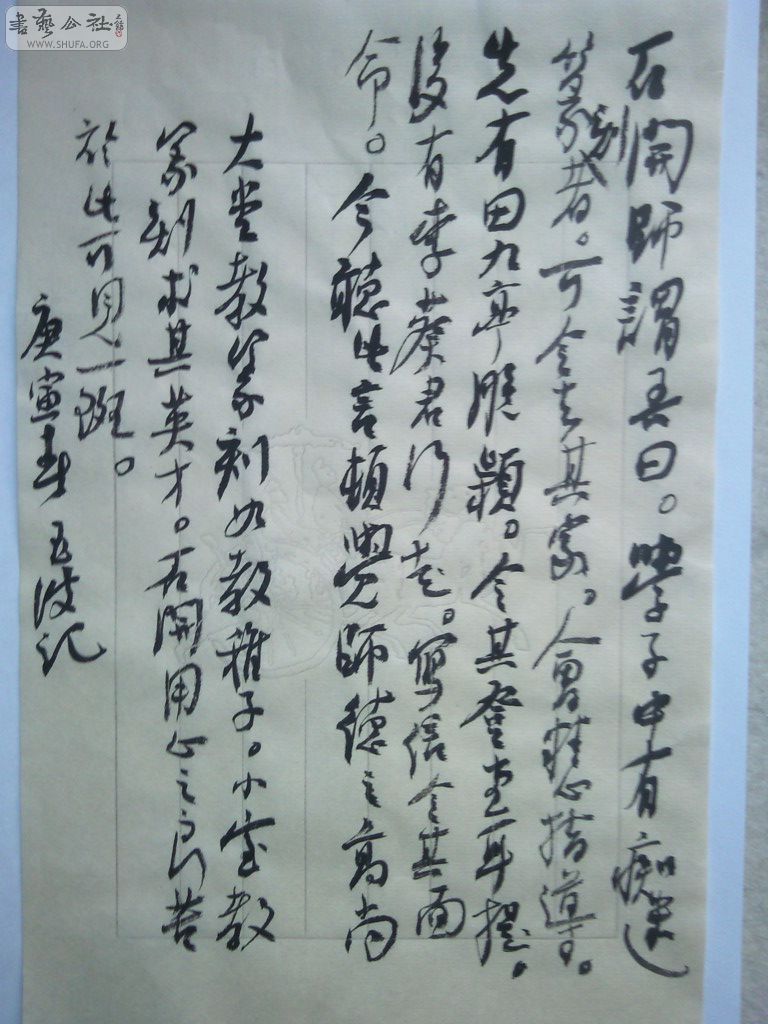 書藝公社
WWW.SHUFA.ORG
石開師謂吾曰。學子中有癡迷
篆刻者。可令去其家。人署精心指導。
先有田九亭脫穎。令其登堂耳提。
後有李蔡君行走。寫信令其面
命。今聽此言頓覺師德之高尚
大堂教篆刻如教稚子。小室教
篆刻求其英才。石開用心之良苦
於此可見一斑。
庚寅春 五波記